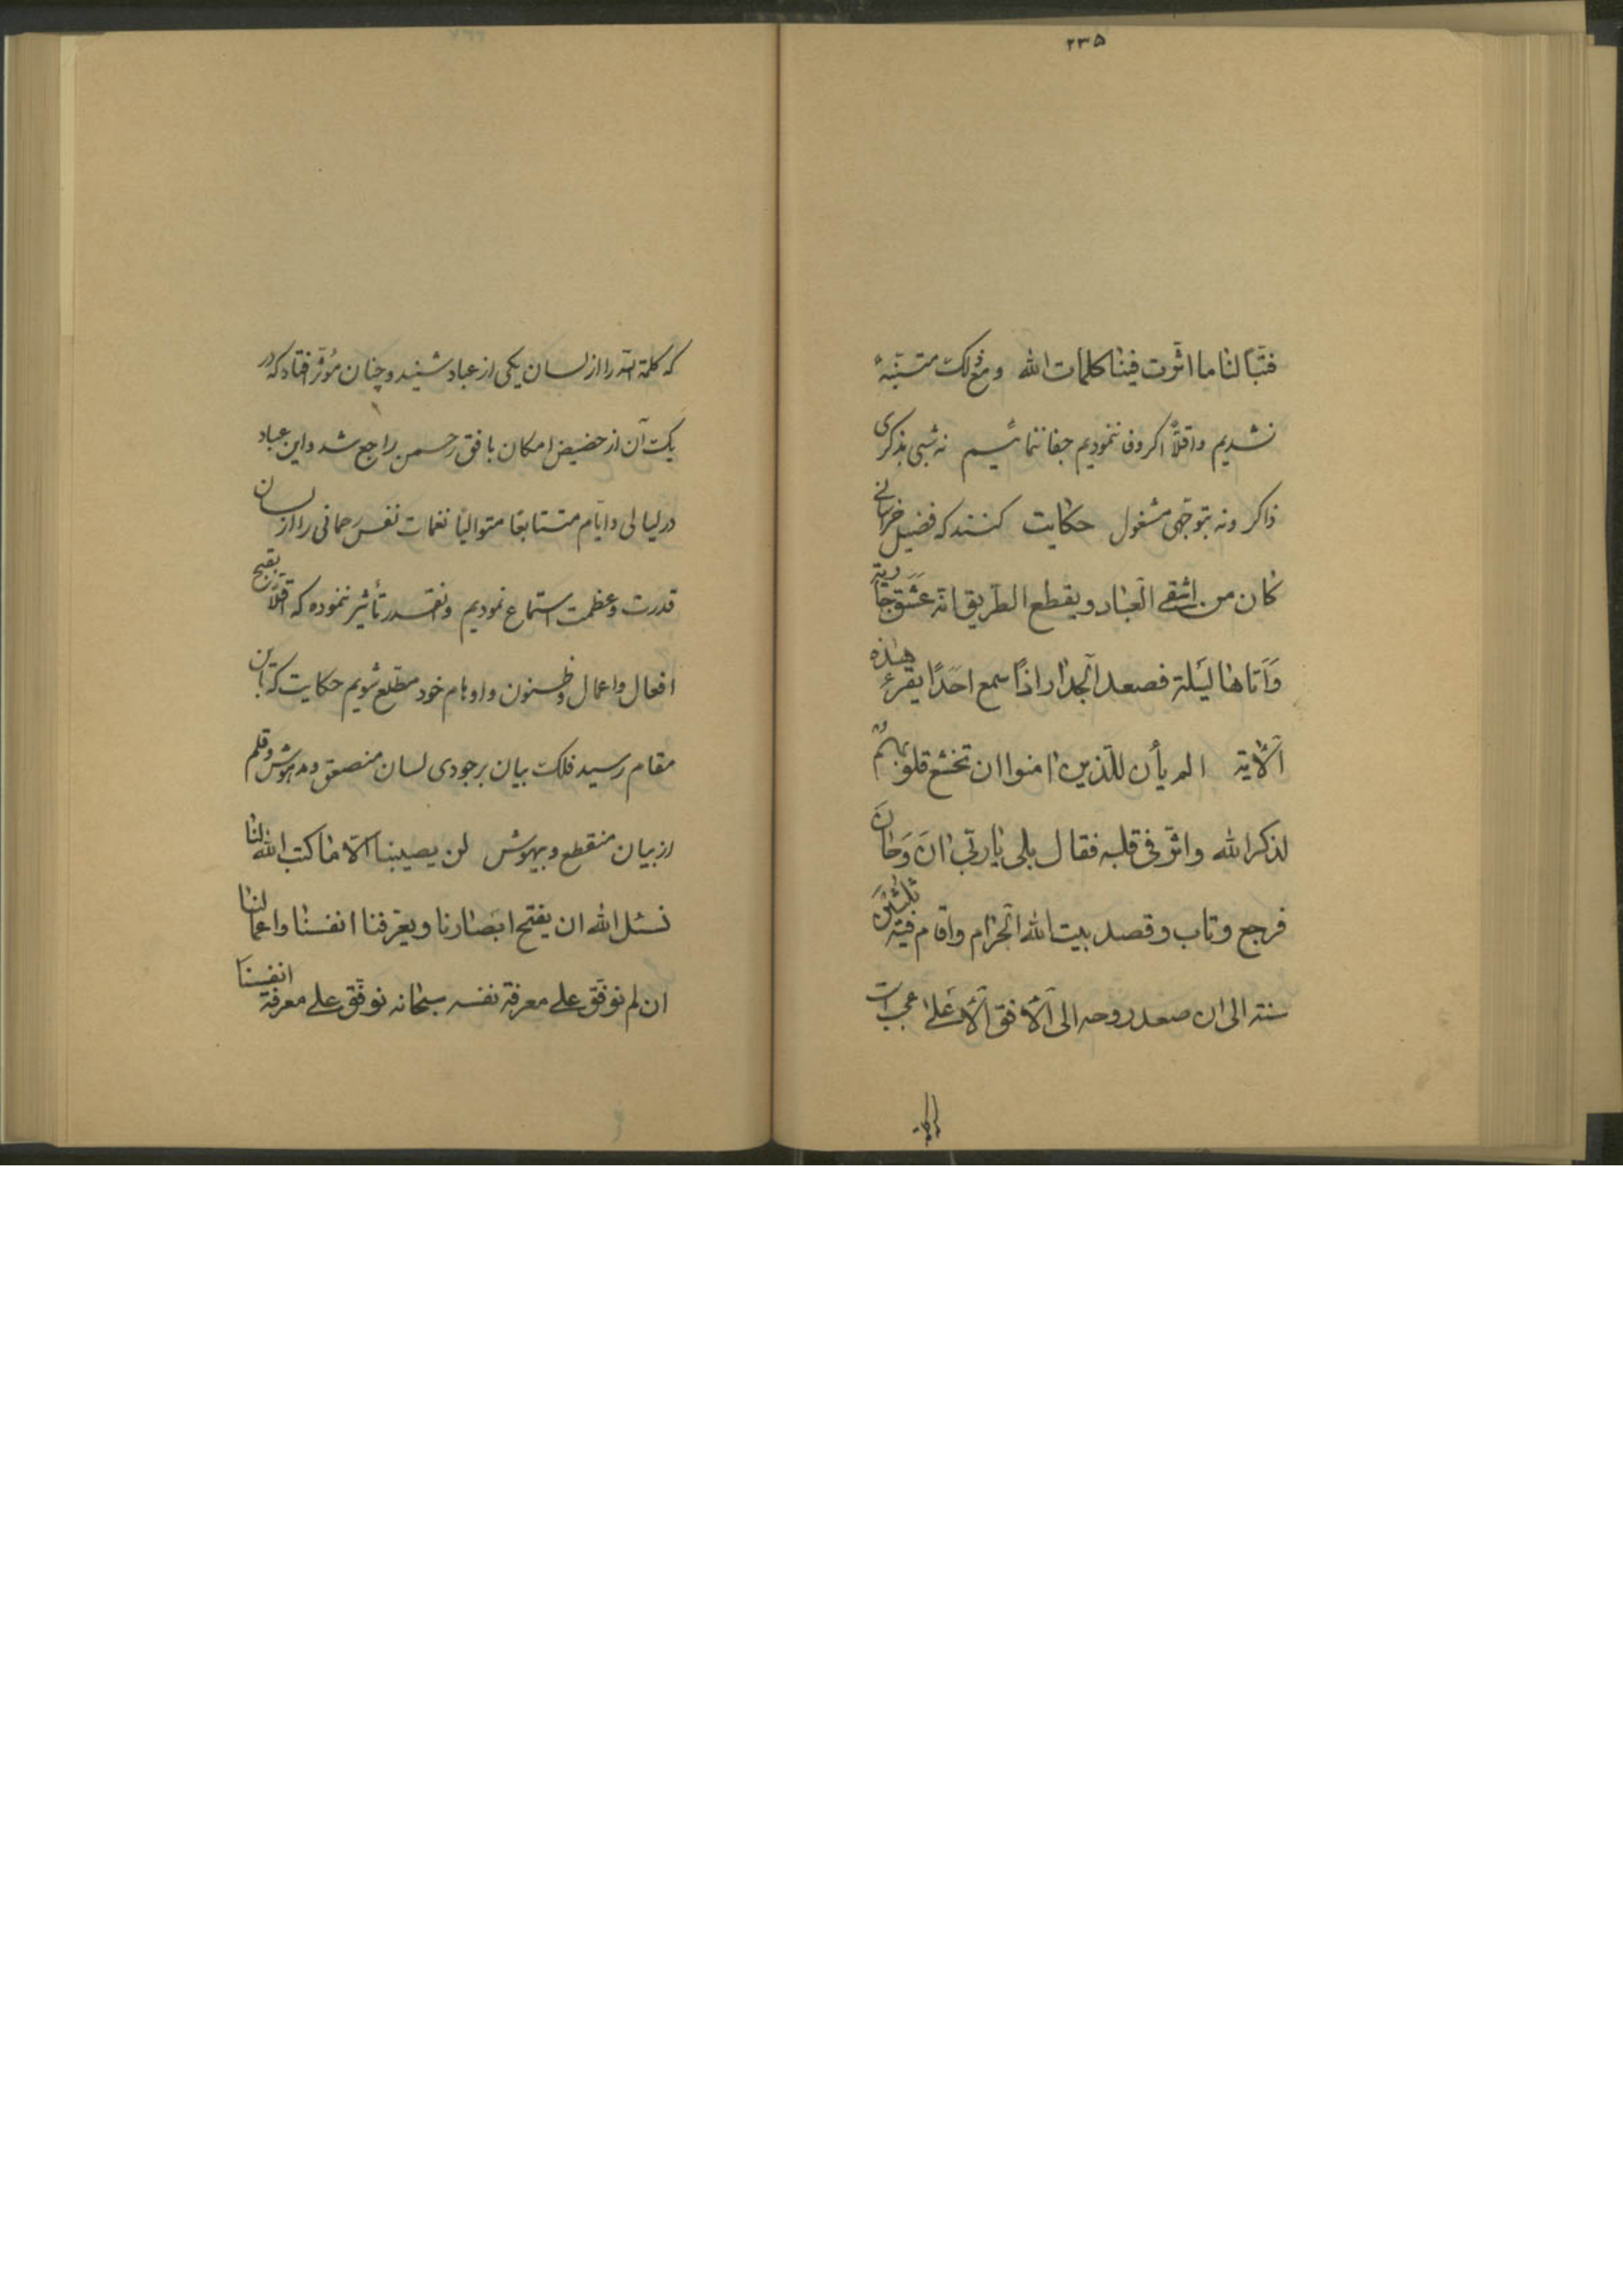 ۲۳۵
فتبّاً لنا ما اثّرت فینا کلمات الله و مع ذلک متنبّه
نشدیم و اقلّاً اگر وفا ننمودیم جفا ننمائیم نه شبی بذکری
ذاکر و نه بتوجّهی مشغول حکایت کنند که فضیل خراسانی
کان من اشقی العباد و یقطع الطّریق انّه عشق جاریة
و اتاها لیلة فصعد الجدار اذاً سمع احداً یقرء هذه
الآیة الم یأن للّذین امنوا ان تخشع قلوبهم
لذکر الله و اثّر فی قلبه فقال بلی یا ربّی ان و حان
فرجع و تاب و قصد بیت الله الحرام و اقام فیه ثلثین
سنة الی ان صعد روحه الی الأفق الأعلی عجب است
که کلمة الله را از لسان یکی از عباد شنید و چنان مؤثّر افتاد که در
یک آن از حضیض امکان بافق رحمن راجع شد و این عباد
در لیالی و ایّام متتابعاً متوالیاً نغمات نفس رحمانی را از لسان
قدرت و عظمت استماع نمودیم و آنقدر تأثیر ننموده که اقلّاً بقبح
افعال و اعمال و ظنون و اوهام خود مطّلع شویم حکایت که باین
مقام رسید فلک بیان بر جودی لسان منصعق و مدهوش و قلم
از بیان منقطع و بیهوش لن یصیبنا الّا ما کتب الله لنا
نسئل الله ان یفتح ابصارنا و یعرّفنا انفسنا و اعمالنا
ان لم نوفّق علی معرفة نفسه سبحانه نوفّق علی معرفة انفسنا